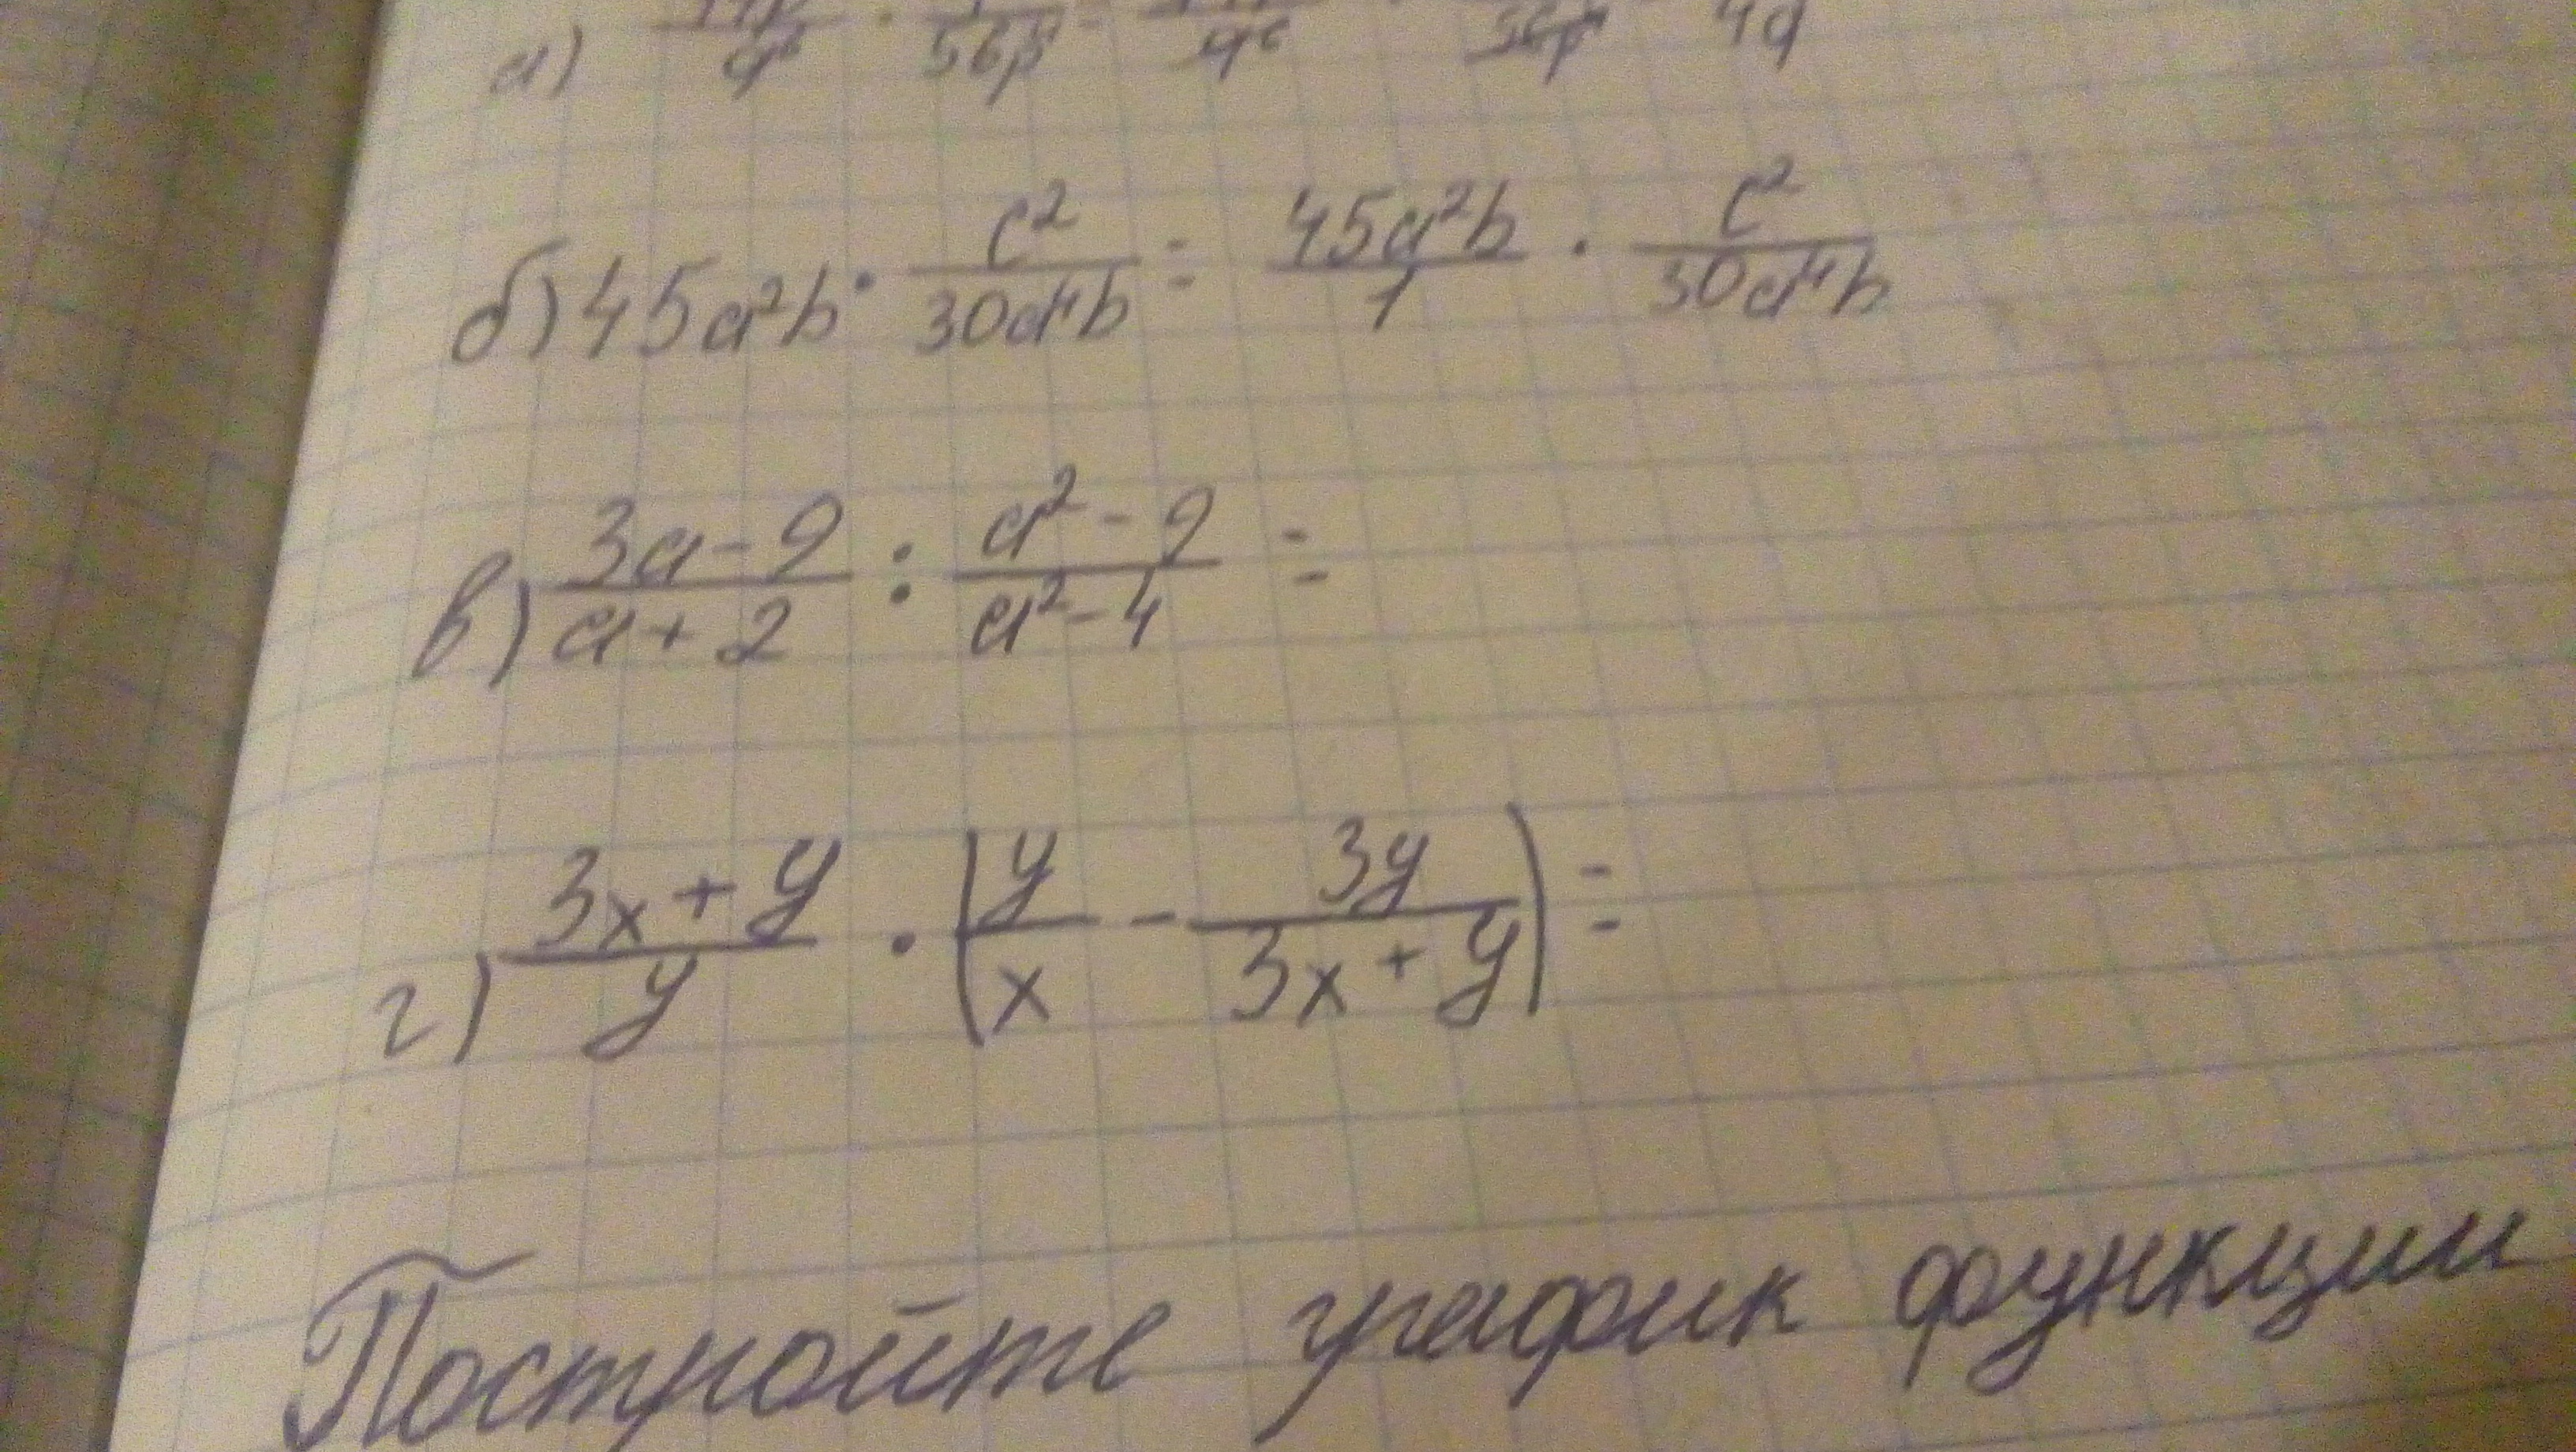 а) q⁶ · 56p⁴ = q⁶ · 56p⁴ 4q
б) 45a²b · c²/30a⁴b = 45a²b/1 · c²/30a⁴b
в) 3a-9/a+2 : a²-9/a²-4 =
г) 3x+y/y · (y/x - 3y/3x+y) =
Постройте график функции